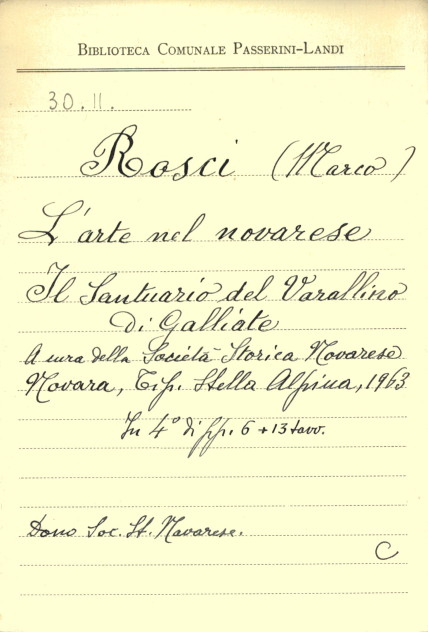 BIBLIOTECA COMUNALE PASSERINI-LANDI
30.11.
Rosci (Marco)
L'arte nel novarese
Il Santuario del Varallino
di Galliate
A cura della Società Storica Novarese
Novara, Tip. Stella Alpina, 1963
In 4° di pp. 6 + 13 tavv.
Dono Soc. St. Novarese.
C